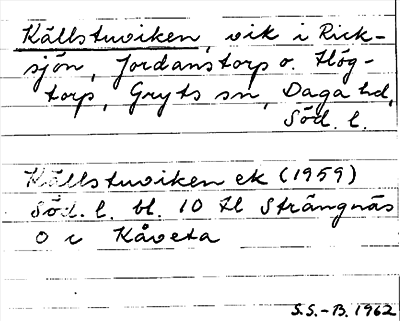 Källstuviken, vik i Rick-
sjön, Jordanstorp o. Hög-
torp, Gryts sn, Daga hd,
Söd. l.
Källstuviken ek (1959)
Söd. l. bl. 10 Strängnäs
Kåveta
S.S.-B. 1962